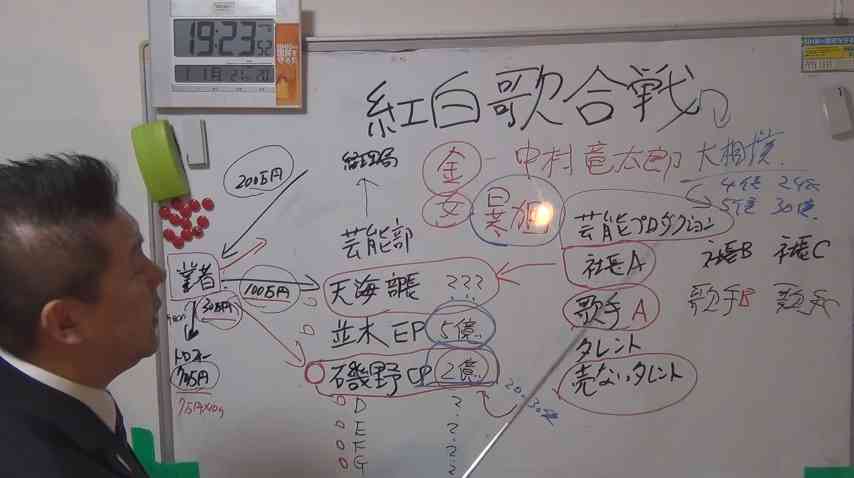 19:23 52
紅白歌合戦
金 - 中村竜太郎 大相撲
経理局
200万円
4億 2億
5億 30億
女
芸能部
芸能プロダクション
業者
100万円
天海部長 ???
社長A 社長B 社長C
30万円
並木EP 5億
歌手A 歌手B 歌手
トロフィー
タレント
7万円
磯野CP 2億
売ないタレント
20.30億
D ?
E ?
F ?
G ?